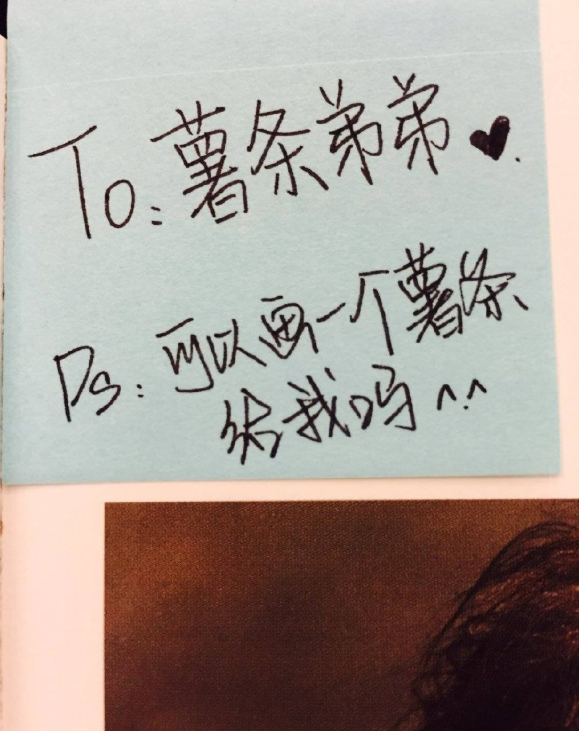 To：薯条弟弟♥.
Ps：可以画一个薯条
给我吗^.^